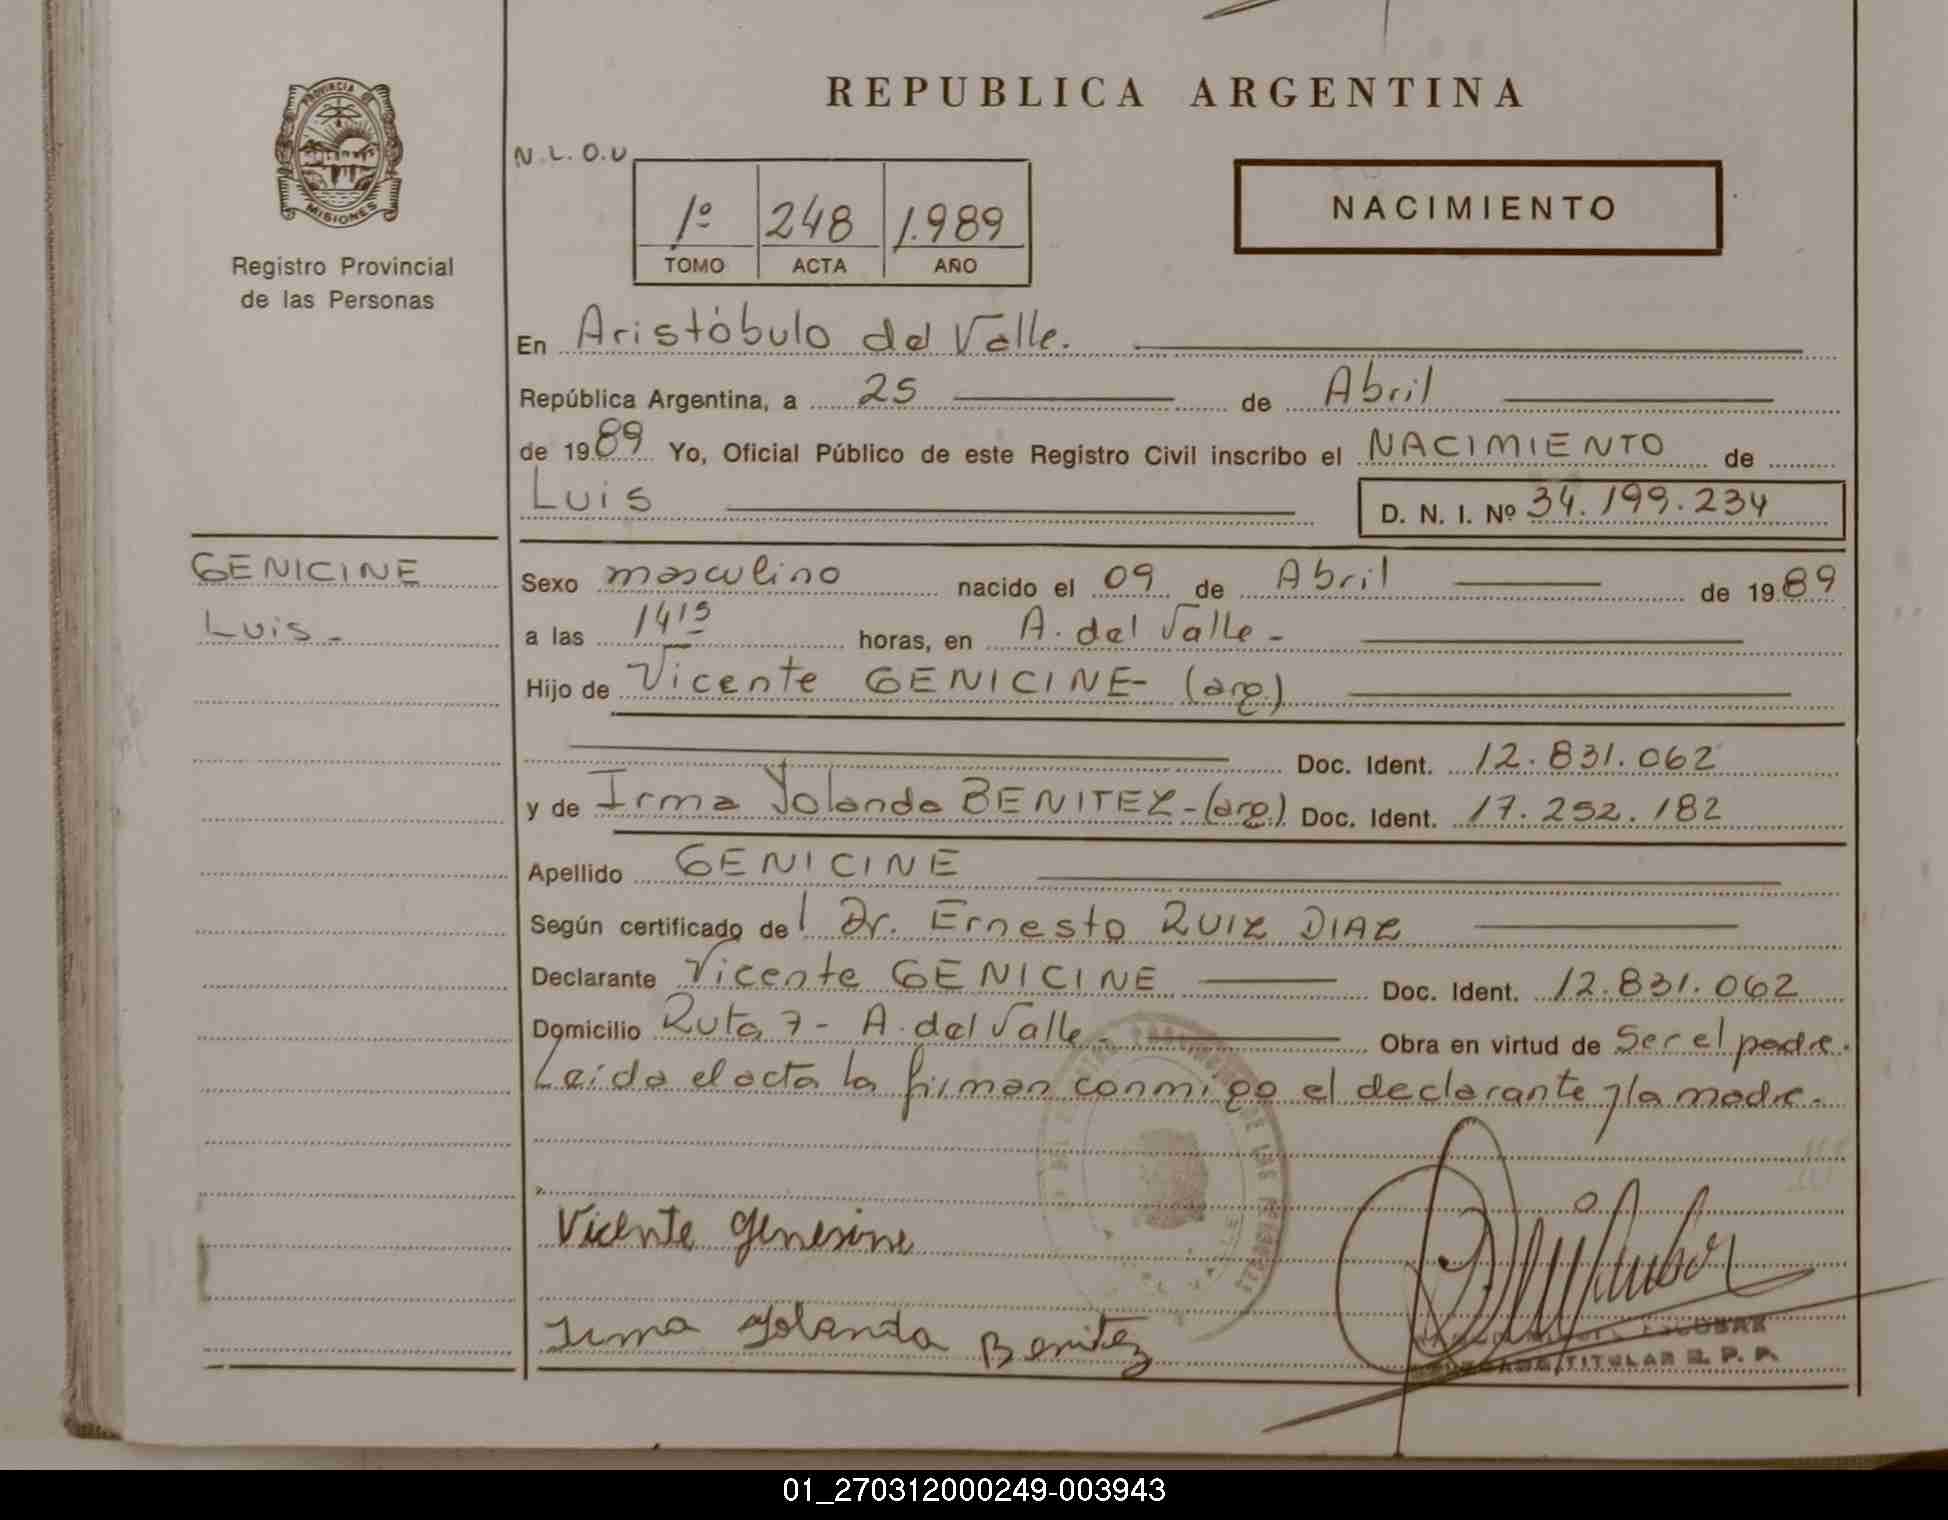 PROVINCIA DE
MISIONES
Registro Provincial
de las Personas
GENICINE
Luis -
REPUBLICA ARGENTINA
N.L.O.U
1º 248 1.989
TOMO ACTA AÑO
NACIMIENTO
En Aristóbulo del Valle.
República Argentina, a 25 de Abril
de 1989 Yo, Oficial Público de este Registro Civil inscribo el NACIMIENTO de
Luis D. N. I. Nº 34.199.234
Sexo masculino nacido el 09 de Abril de 1989
a las 14 15 horas, en A. del Valle -
Hijo de Vicente GENICINE - (arg)
Doc. Ident. 12.831.062
y de Irma Yolanda BENITEZ - (arg) Doc. Ident. 17.252.182
Apellido GENICINE
Según certificado del Dr. Ernesto RUIZ DIAZ
Declarante Vicente GENICINE Doc. Ident. 12.831.062
Domicilio Ruta 7 - A. del Valle - Obra en virtud de Ser el padre.
Leída el acta la firman conmigo el declarante y la madre.
Vicente Genesine
Irma Yolanda Benitez
ESCOBAR
TITULAR R. P. P.
01_270312000249-003943